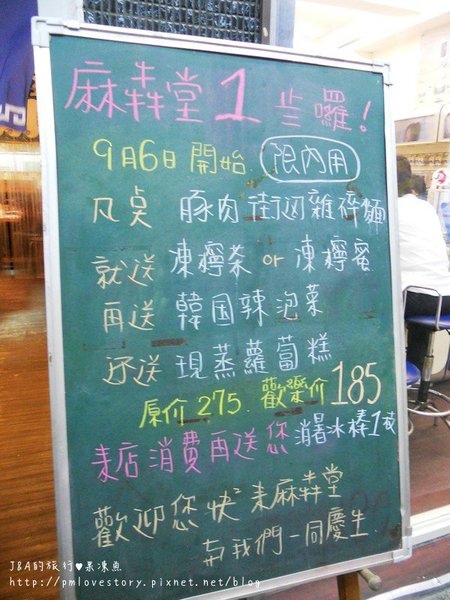 麻犇堂1岁囉!
9月6日開始 限內用
凡桌 豚肉街边雜碎麵
就送 凍檸茶or凍檸蜜
再送 韓国辣泡菜
还送 現蒸蘿蔔糕
原价275.歡樂价185
来店消費再送您消暑冰棒1枝
歡迎您快來麻犇堂
与我們一同慶生
J&A的旅行♥果凍魚
http://pmlovestory.pixnet.net/blog